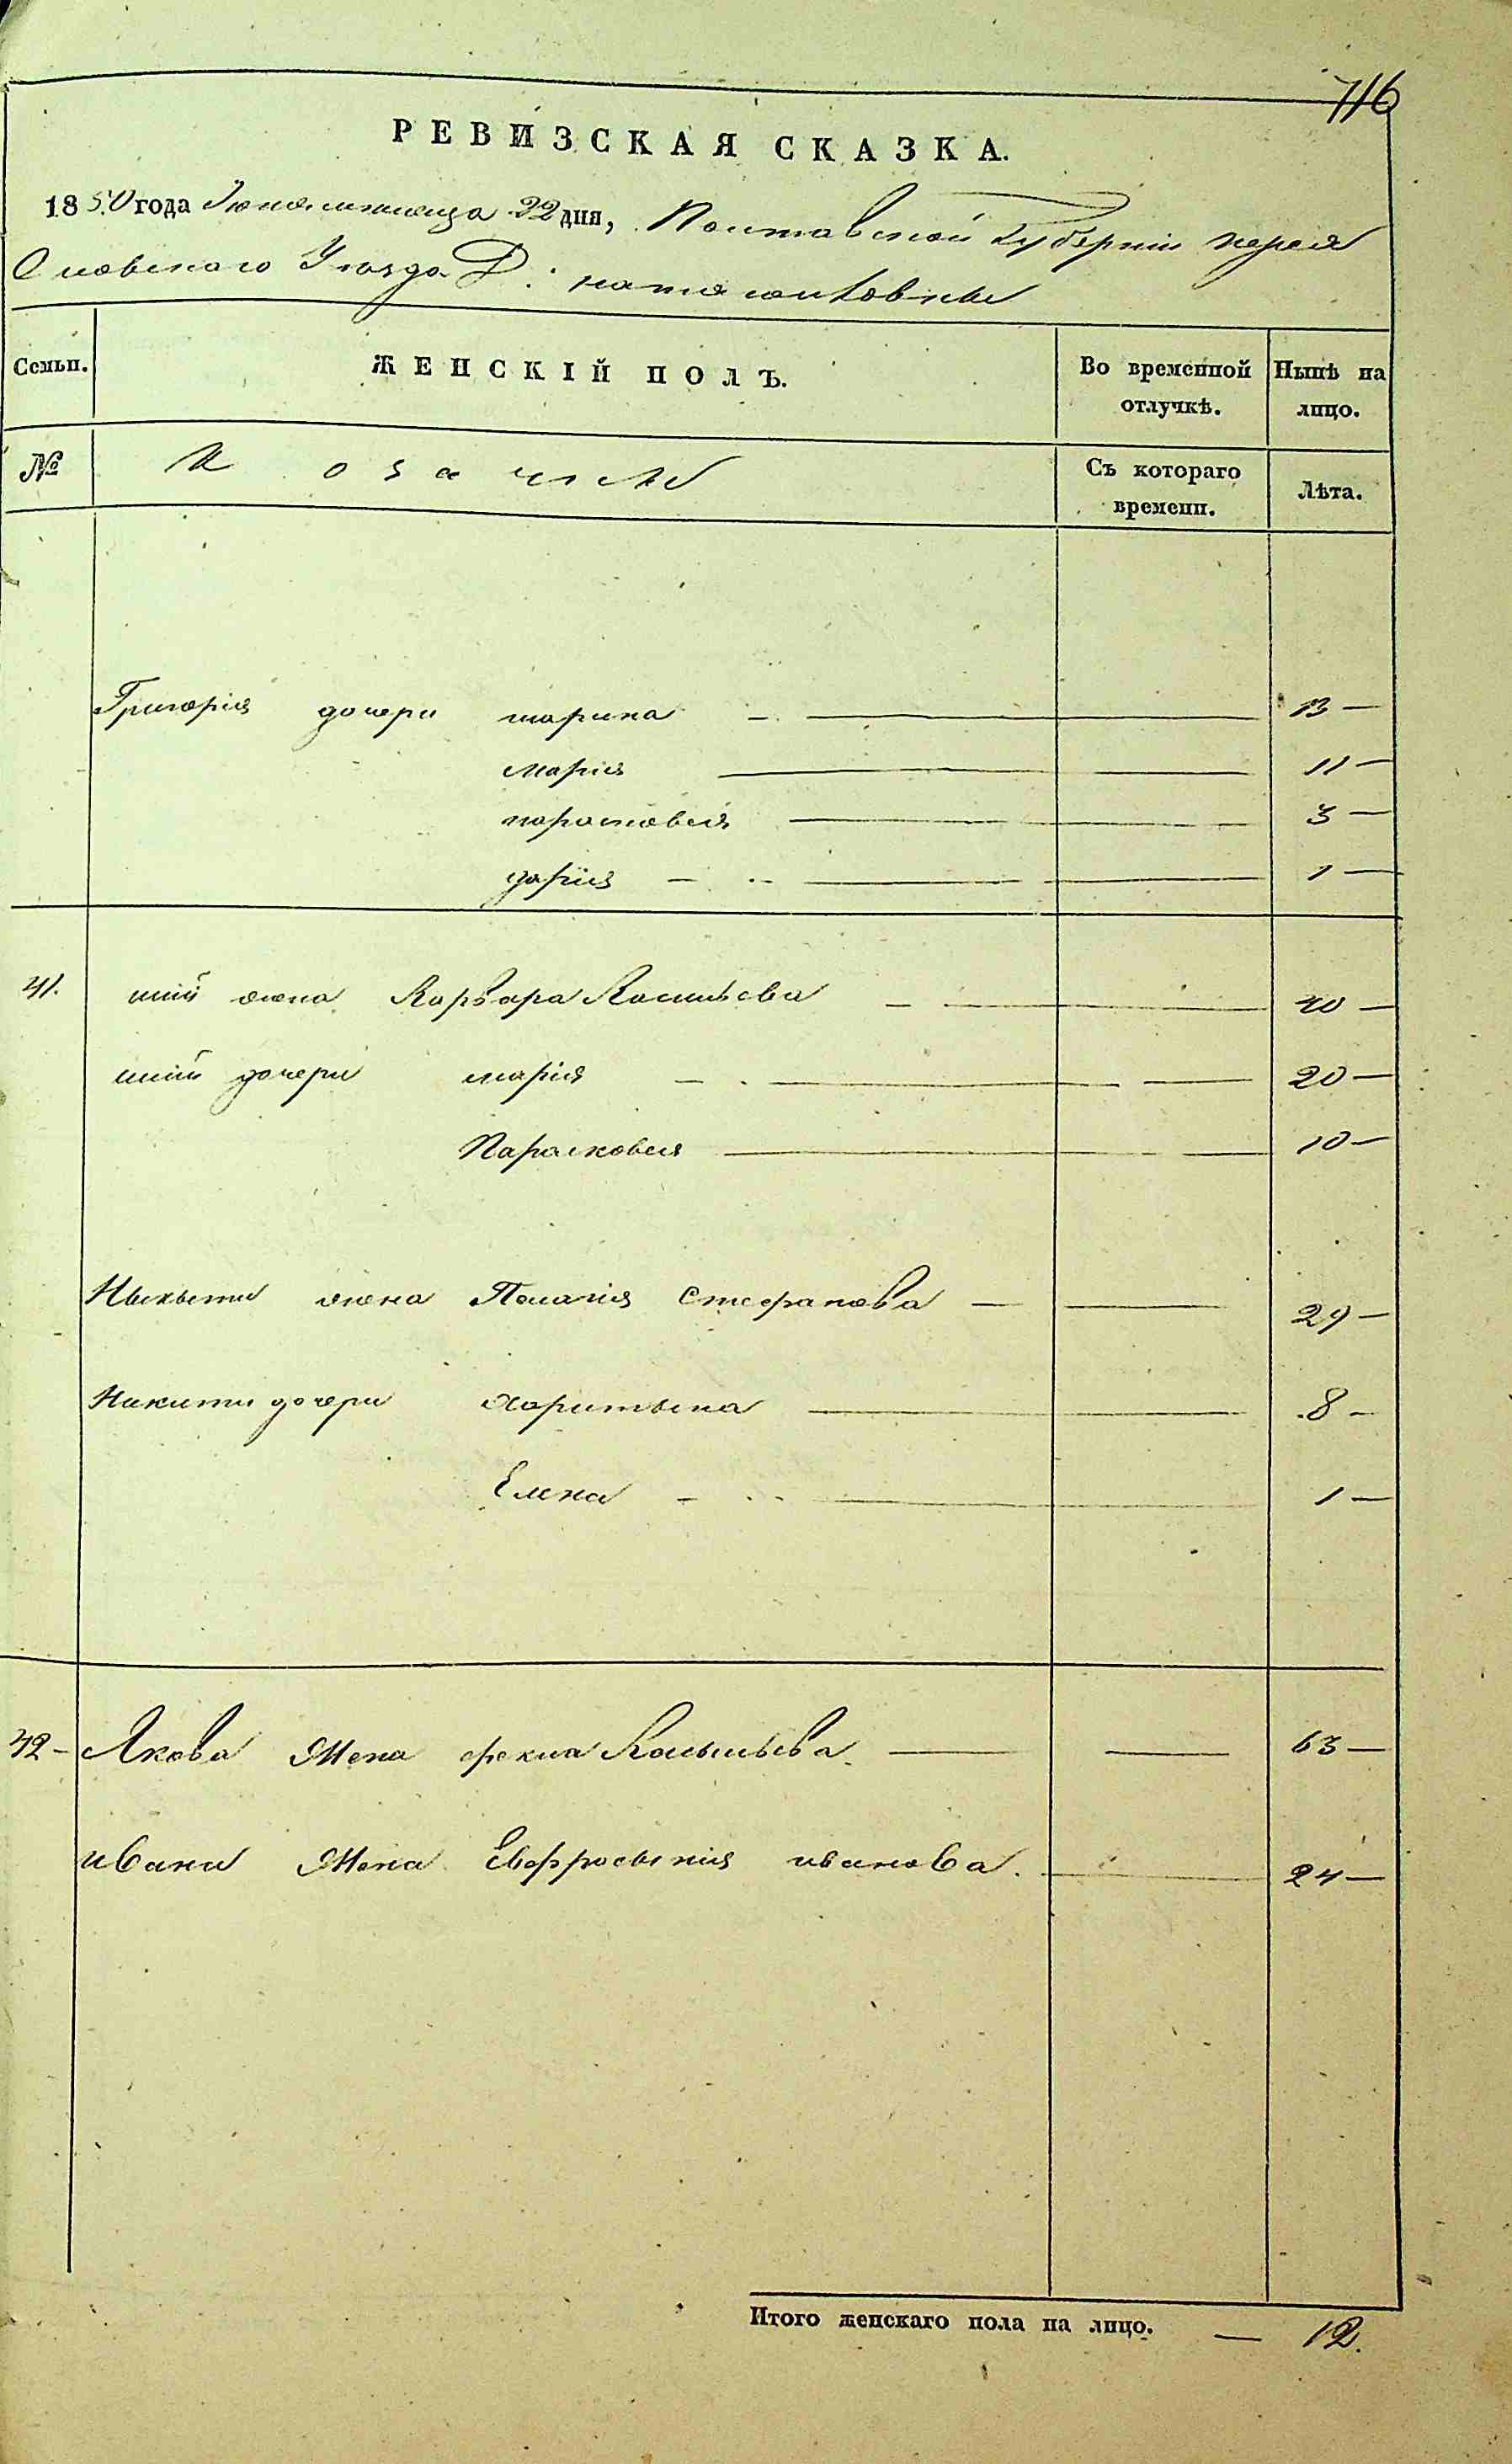 716
РЕВИЗСКАЯ СКАЗКА.
1850 года Июня месяца 22 дня, Полтавской Губерніи перея
Словского Уезда Д:
Семьи. ЖЕНСКІЙ ПОЛЪ. Во временной отлучкѣ. Нынѣ на лицо.
№ Козачки Съ котораго времени. Лѣта.
Григорія дочери марина — 13 —
марія — 11 —
парасковея — 3 —
дарія — 1 —
41. жена Варвара Васильева — 40 —
дочери марія — 20 —
Парасковея — 10 —
Ныкыты жена Пелагія Стефанова — 29 —
Никиты дочери Харитына — 8 —
Елена — 1 —
42 — Якова Жена фекла Васыльева — 63 —
ивана Жена Евфросынія иванова. — 24 —
Итого женскаго пола на лицо. — 12.